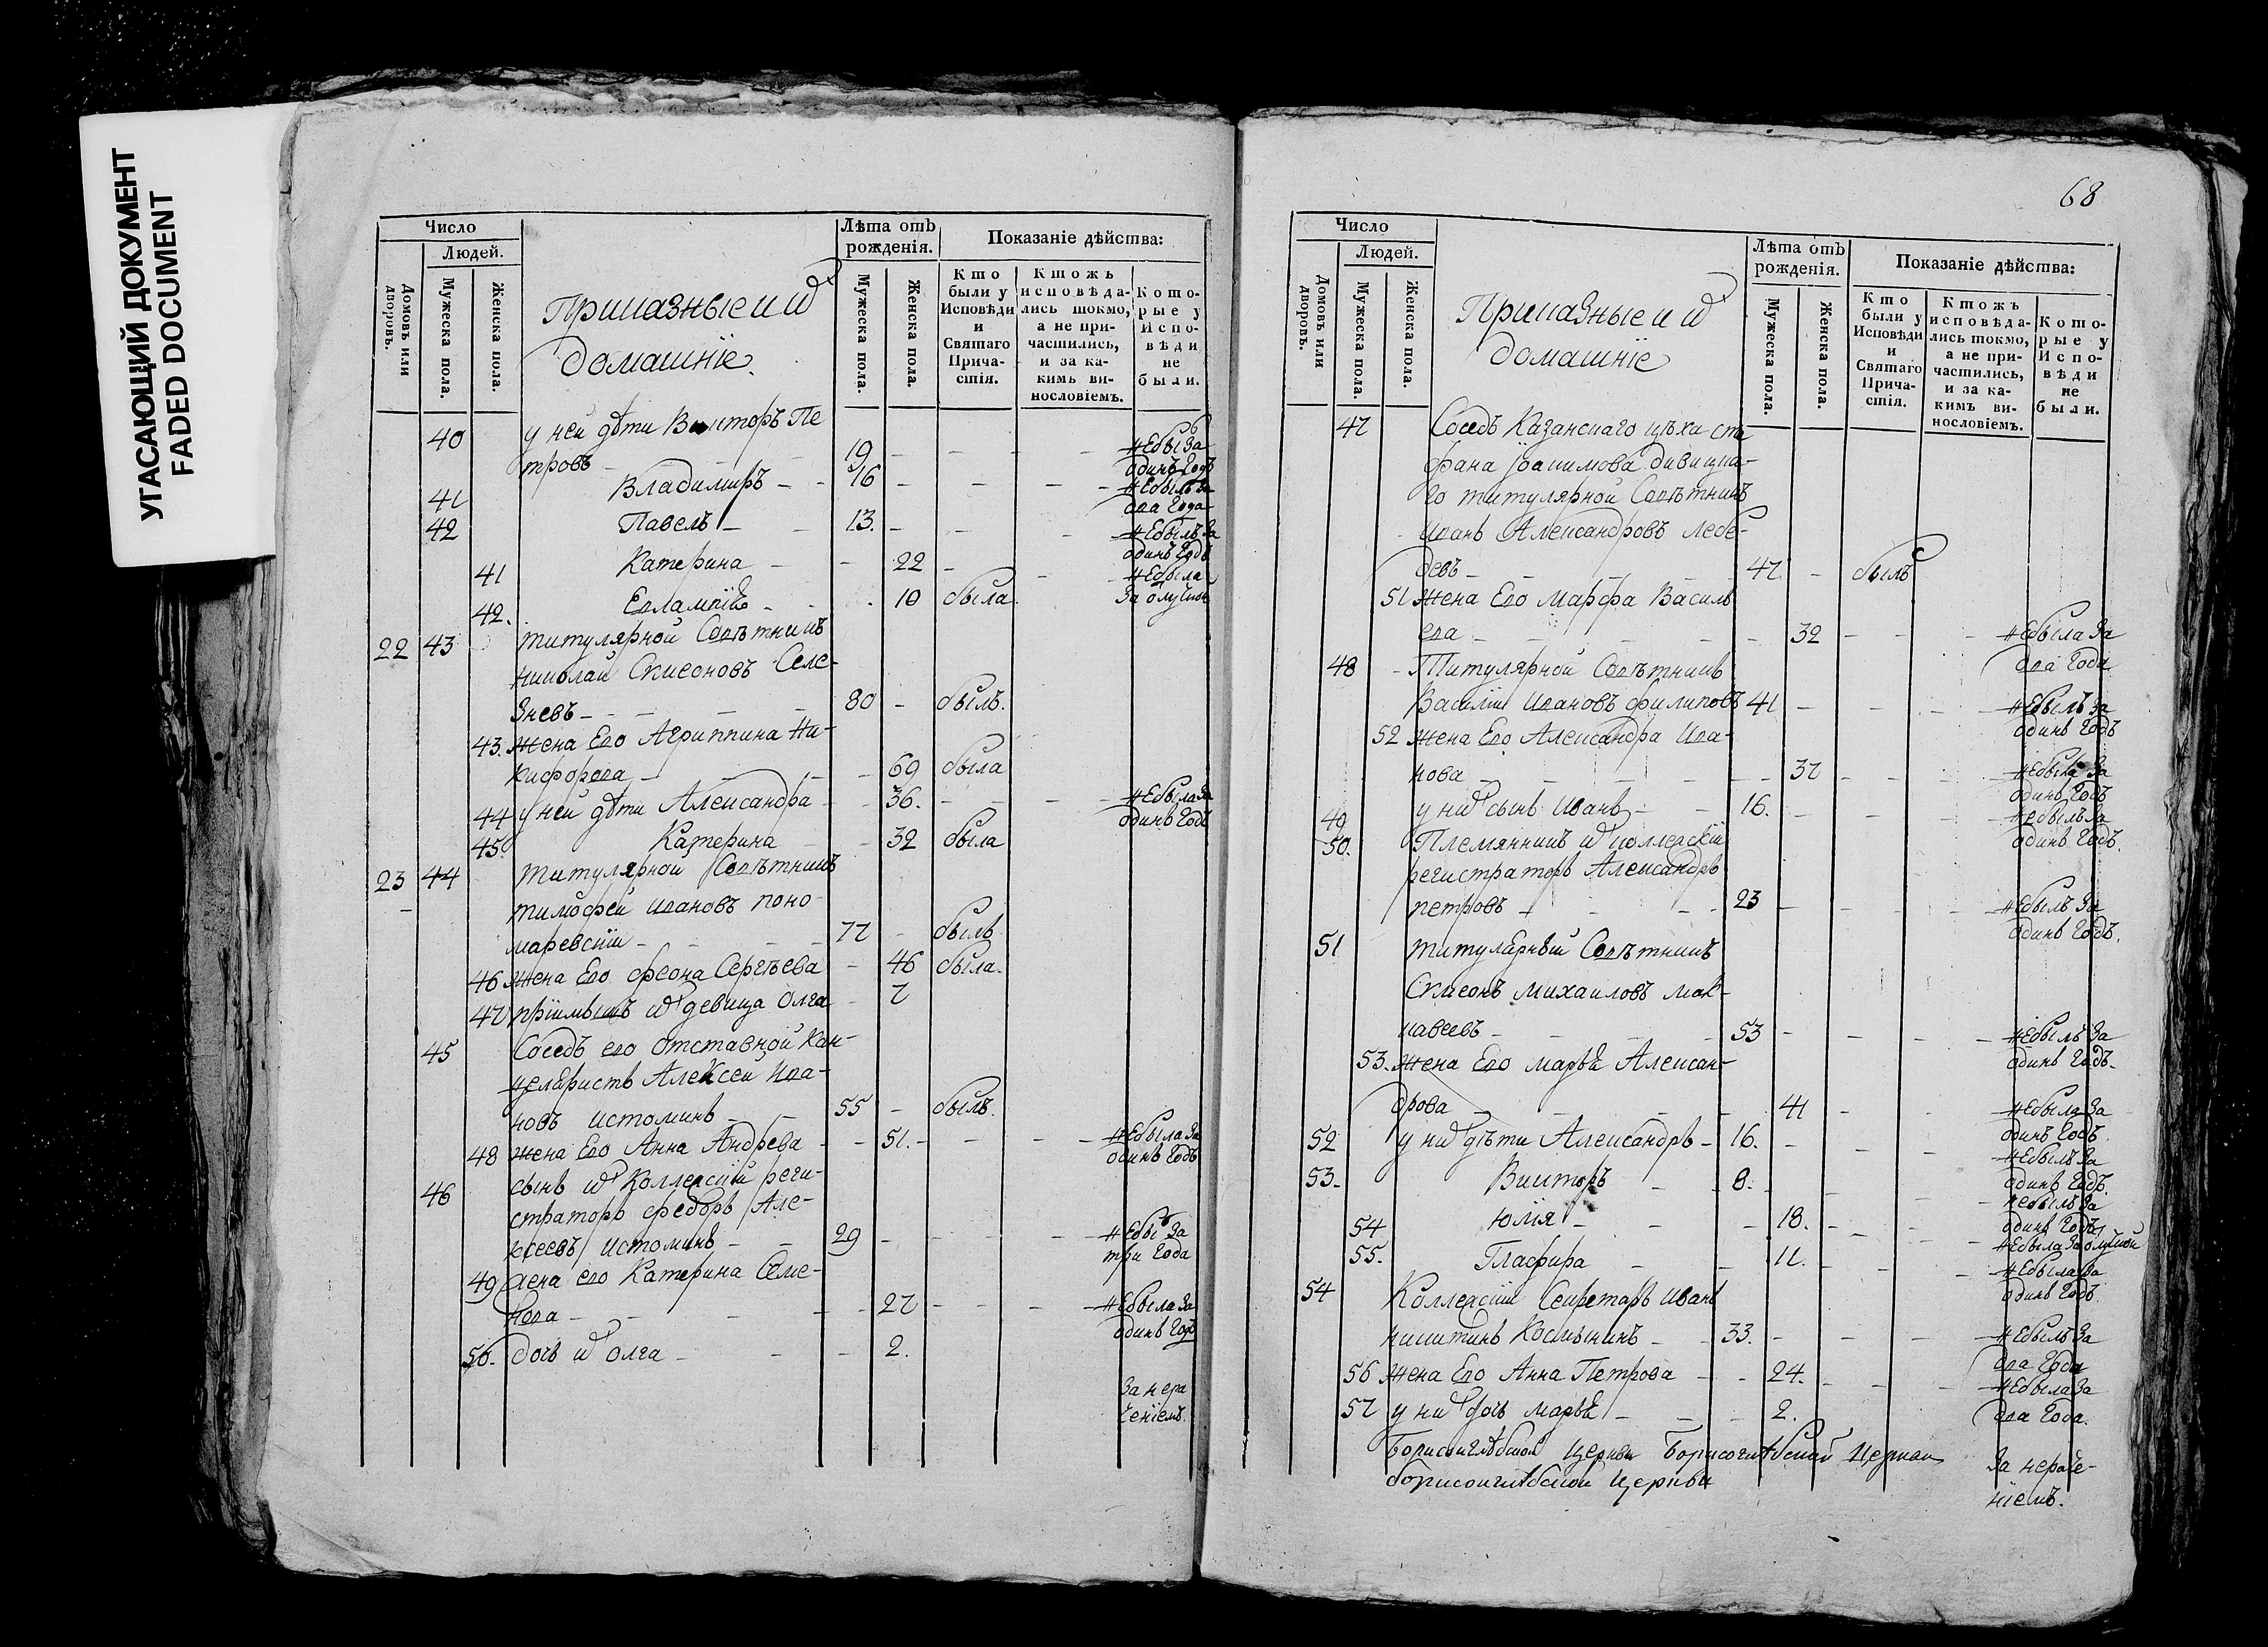 УГАСАЮЩИЙ ДОКУМЕНТ
FADED DOCUMENT
Число
Людей.
Домовъ или дворовъ.
Мужеска пола.
Женска пола.
Приказные и ихъ
домашніе.
Лѣта отъ
рожденія.
Мужеска пола.
Женска пола.
Показаніе дѣйства:
Кто
были у
Исповѣди
и
Святаго
Прича-
стія.
Ктожъ
исповѣда-
лись токмо,
а не при-
частились,
и за ка-
кимъ ви-
нословіемъ.
Кото-
рые у
Испо-
вѣди
не
были.
40 у ней дѣти Викторъ Пе
тровъ 19 небы за
одинъ годъ
41 Владимиръ 16 небылъ за
два года
42 Павелъ 13. небылъ за
одинъ годъ
41 Катерина 22 небыла
за отлучкою
42. Евлампія 10 была
22 43 титулярной Советникъ
Николай Симеоновъ Селе-
зневъ 80 былъ.
43. жена Его Агриппина Ни-
кифорова 69 была
44 у ней дѣти Александра 36. небыла за
одинъ годъ
45. Катерина 32 была
23 44 титулярной Советникъ
тимофей ивановъ поно-
маревскіи 77 былъ
46 жена Его феона Сергѣева 46 была.
47 пріимышъ ихъ девица Олга 7
45 Соседъ его отставной Кан-
целяристъ Алексеи Ива-
новъ истоминъ 55 былъ.
48 жена Его Анна Андрева 51. небыла за
одинъ годъ
46 сынъ ихъ Коллежскіи реги-
страторъ федоръ Але-
ксеевъ истоминъ 29 небы за
три года
49 жена его Катерина Семе-
нова 27 небыла за
одинъ годъ
50. дочь ихъ олга 2.
За нера
ченіемъ.
68
Число
Людей.
Домовъ или дворовъ.
Мужеска пола.
Женска пола.
Приказные и ихъ
домашніе
Лѣта отъ
рожденія.
Мужеска пола.
Женска пола.
Показаніе дѣйства:
Кто
были у
Исповѣди
и
Святаго
Прича-
стія.
Ктожъ
исповѣда-
лись токмо,
а не при-
частились,
и за ка-
кимъ ви-
нословіемъ.
Кото-
рые у
Испо-
вѣди
не
были.
47 Соседъ Казанскаго цѣха сте
фана
го титулярной Советникъ
иванъ Александровъ лебе-
девъ 47 былъ
51 жена Его марфа Василь
ева 32 небыла за
два года
48 Титулярной Советникъ
Василіи ивановъ филиповъ 41 небылъ за
одинъ годъ
52 жена Его Александра Ива-
нова 37 небыла за
одинъ годъ
49 у нихъ сынъ иванъ 16. небылъ за
одинъ годъ.
50. Племянникъ ихъ коллежскіи
регистраторъ Александръ
петровъ 23 небылъ за
одинъ годъ.
51 титулярныи Советникъ
Симеонъ михаиловъ мак-
кавеевъ 53 небылъ за
одинъ годъ.
53. жена Его марья Алексан-
дрова 41 небыла за
одинъ годъ
52 у нихъ дѣти Александръ 16. небылъ за
одинъ годъ.
53. Викторъ 8. небылъ за
одинъ годъ
54 юлія 18. небыла за отлучкой
55. Глафира 11. небыла за
одинъ годъ.
54 Коллежскіи Секретарь иванъ
никитинъ Косминынъ 33. небылъ за
два года
56 жена Его Анна Петрова 24. небыла за
два года.
57 у нихъ дочь марья 2.
Борисоглѣбской церкви Борисоглѣбской Церкви
борисоглѣбской Церкви
За нераче-
ніемъ.